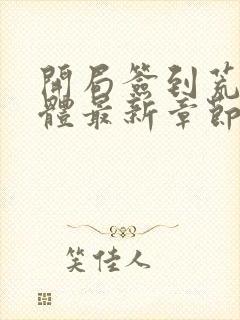 開局簽到荒
體最新章節
笑佳人